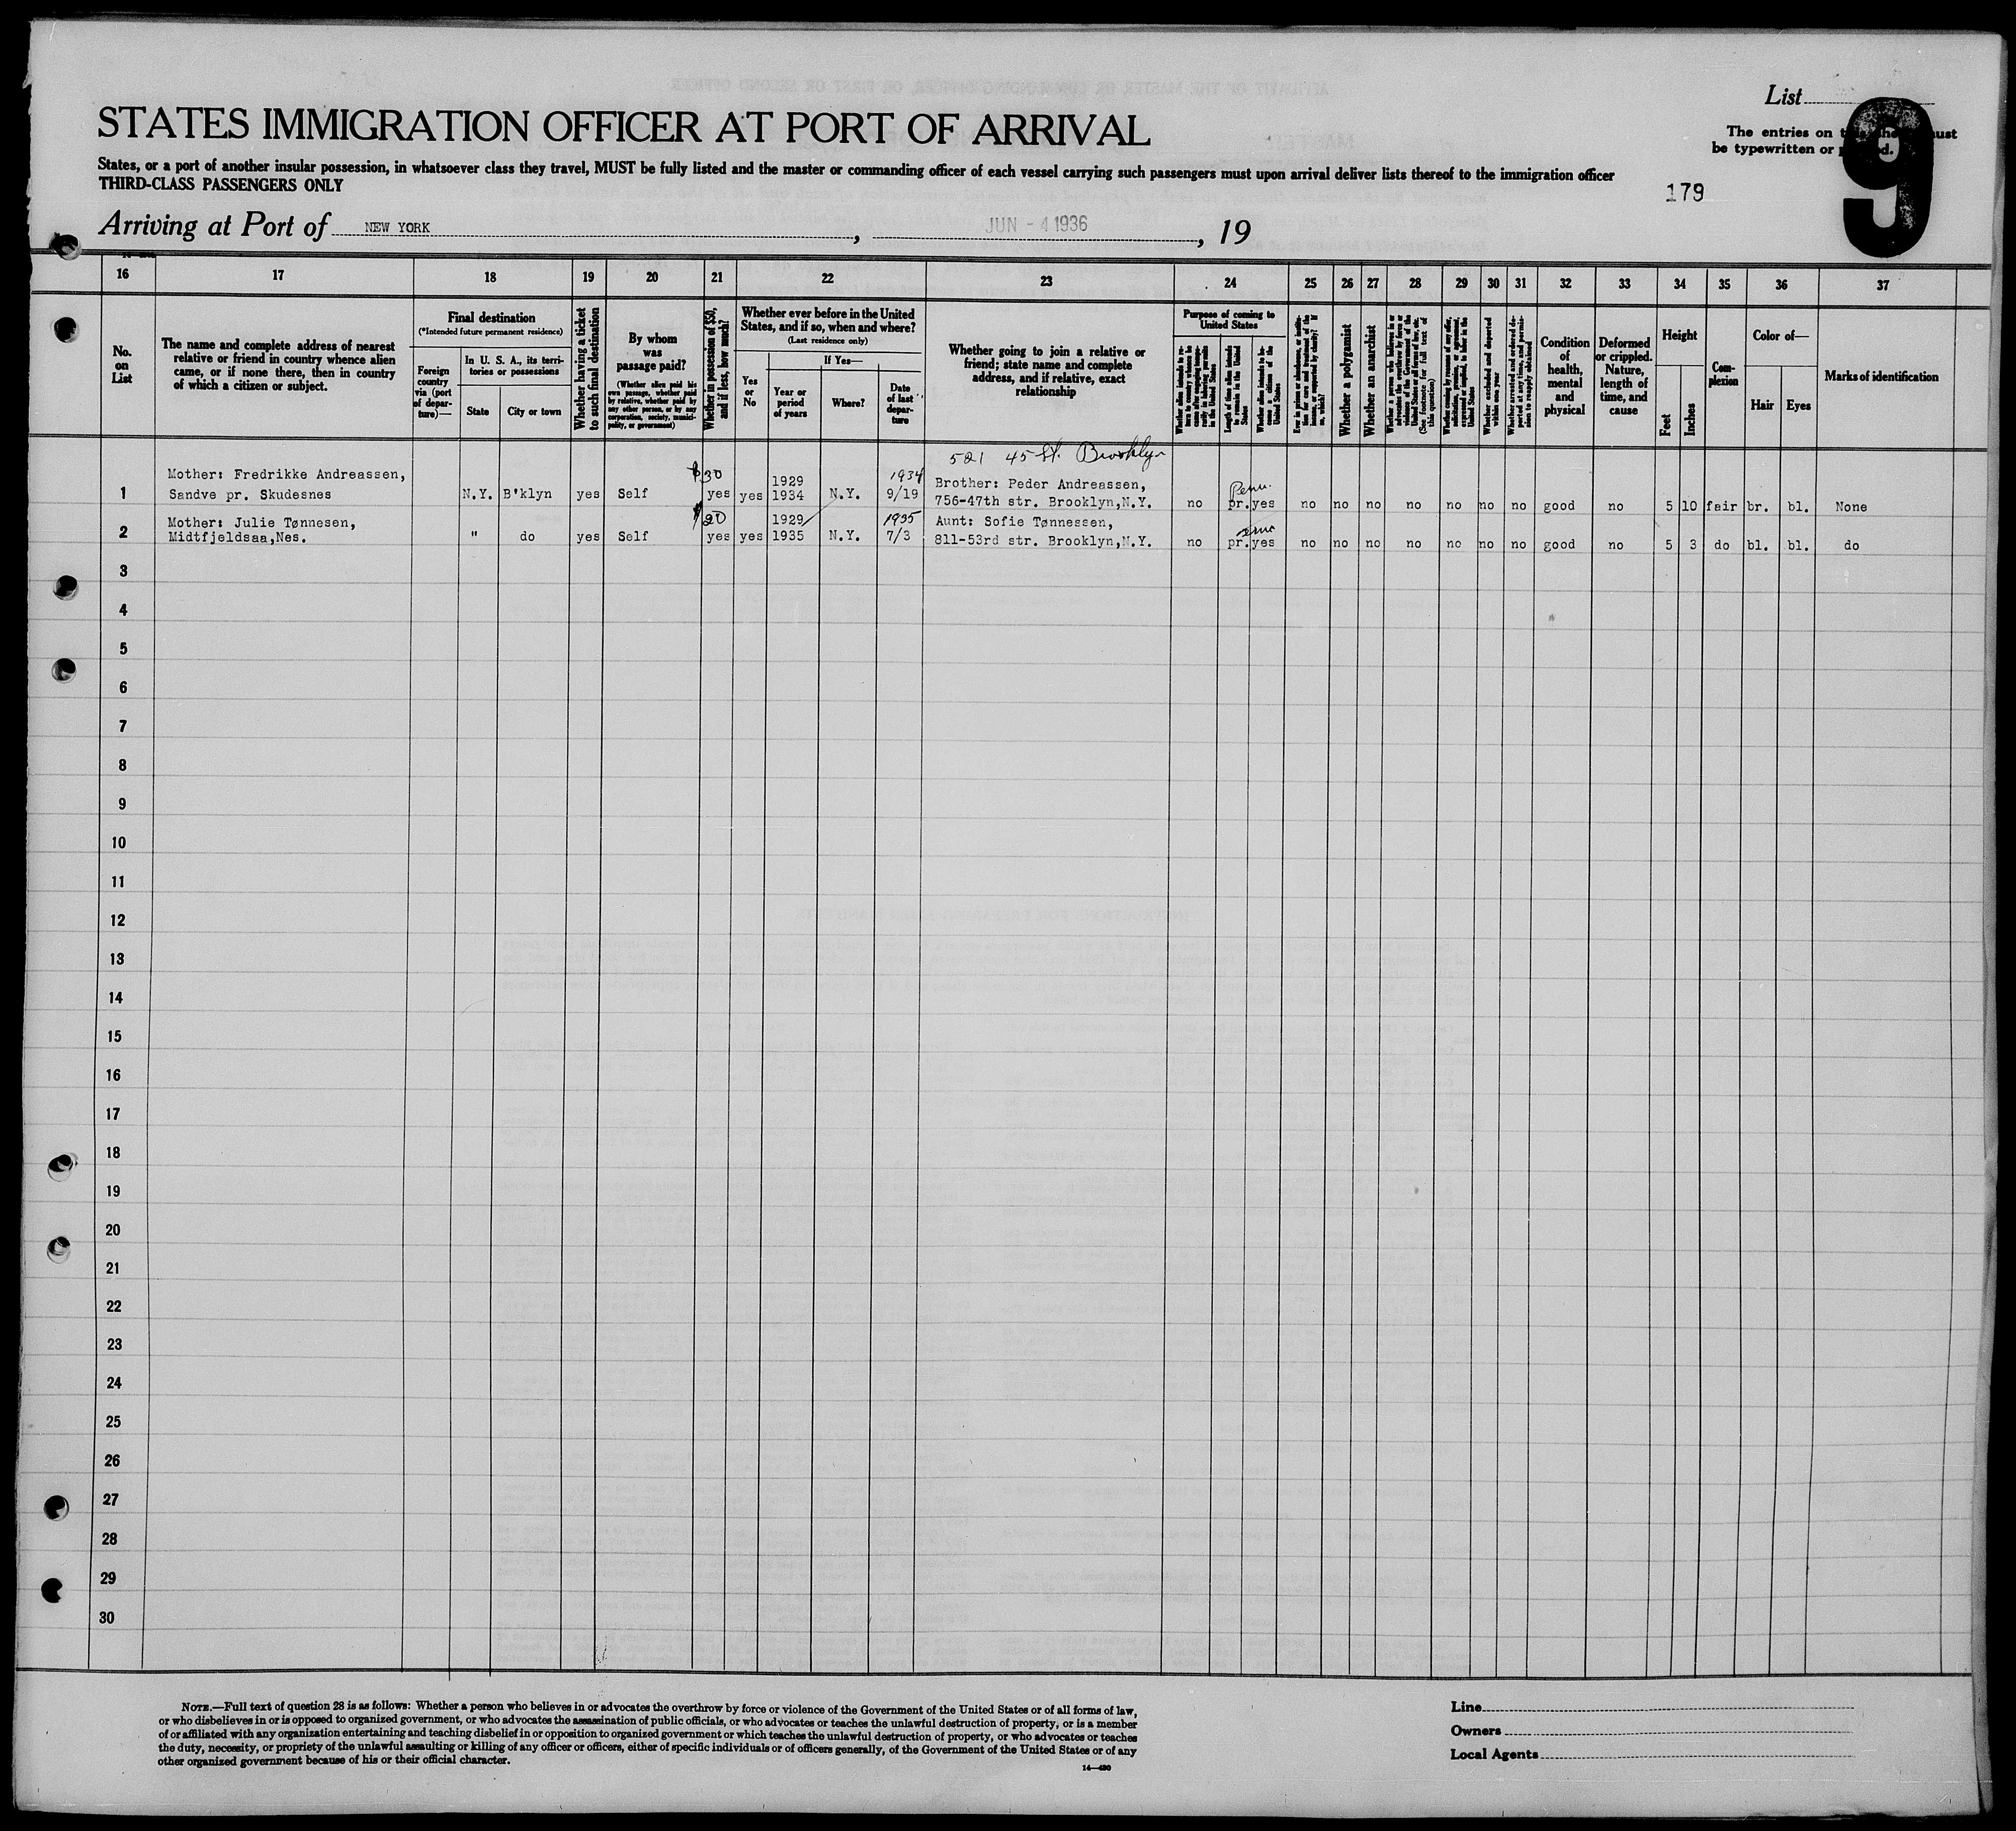 List
9
The entries on
be typewritten or
STATES IMMIGRATION OFFICER AT PORT OF ARRIVAL
States, or a port of another insular possession, in whatsoever class they travel, MUST be fully listed and the master or commanding officer of each vessel carrying such passengers must upon arrival deliver lists thereof to the immigration officer
THIRD-CLASS PASSENGERS ONLY
179
Arriving at Port of NEW YORK, JUN - 4 1936, 19
16 17 18 19 20 21 22 23 24 25 26 27 28 29 30 31 32 33 34 35 36 37
No. on List
The name and complete address of nearest
relative or friend in country whence alien
came, or if none there, then in country
of which a citizen or subject.
Final destination
(*Intended future permanent residence)
Foreign country via (port of departure)—
In U. S. A., its territories or possessions
State
City or town
Whether having a ticket to such final destination
By whom was passage paid?
(Whether alien paid his own passage, whether paid by relative, whether paid by any other person, or by any corporation, society, municipality, or government)
Whether in possession of $50, and if less, how much?
Whether ever before in the United States, and if so, when and where?
(Last residence only)
Yes or No
If Yes—
Year or period of years
Where?
Date of last departure
Whether going to join a relative or
friend; state name and complete
address, and if relative, exact
relationship
Purpose of coming to United States
Length of time alien intends to remain in the United States
Whether alien intends to become a citizen of the United States
Whether a polygamist
Whether an anarchist
(See footnote for full text of this question)
Whether excluded and deported within one year
Condition of health, mental and physical
Deformed or crippled. Nature, length of time, and cause
Height
Feet
Inches
Complexion
Color of—
Hair
Eyes
Marks of identification
521 45 St. Brooklyn
Mother: Fredrikke Andreassen, $30 1929 1934 Brother: Peder Andreassen, Perm.
1 Sandve pr. Skudesnes N.Y. B'klyn yes Self yes yes 1934 N.Y. 9/19 756-47th str. Brooklyn,N.Y. no pr. yes no no no no no no no good no 5 10 fair br. bl. None
Mother: Julie Tønnesen, $20 1929 1935 Aunt: Sofie Tønnessen,
2 Midtfjeldsaa,Nes. " do yes Self yes yes 1935 N.Y. 7/3 811-53rd str. Brooklyn,N.Y. no pr. yes no no no no no no no good no 5 3 do bl. bl. do
3
4
5
6
7
8
9
10
11
12
13
14
15
16
17
18
19
20
21
22
23
24
25
26
27
28
29
30
NOTE.—Full text of question 28 is as follows: Whether a person who believes in or advocates the overthrow by force or violence of the Government of the United States or of all forms of law,
or who disbelieves in or is opposed to organized government, or who advocates the assassination of public officials, or who advocates or teaches the unlawful destruction of property, or is a member
of or affiliated with any organization entertaining and teaching disbelief in or opposition to organized government or which teaches the unlawful destruction of property, or who advocates or teaches
the duty, necessity, or propriety of the unlawful assaulting or killing of any officer or officers, either of specific individuals or of officers generally, of the Government of the United States or of any
other organized government because of his or their official character.
14—430
Line
Owners
Local Agents